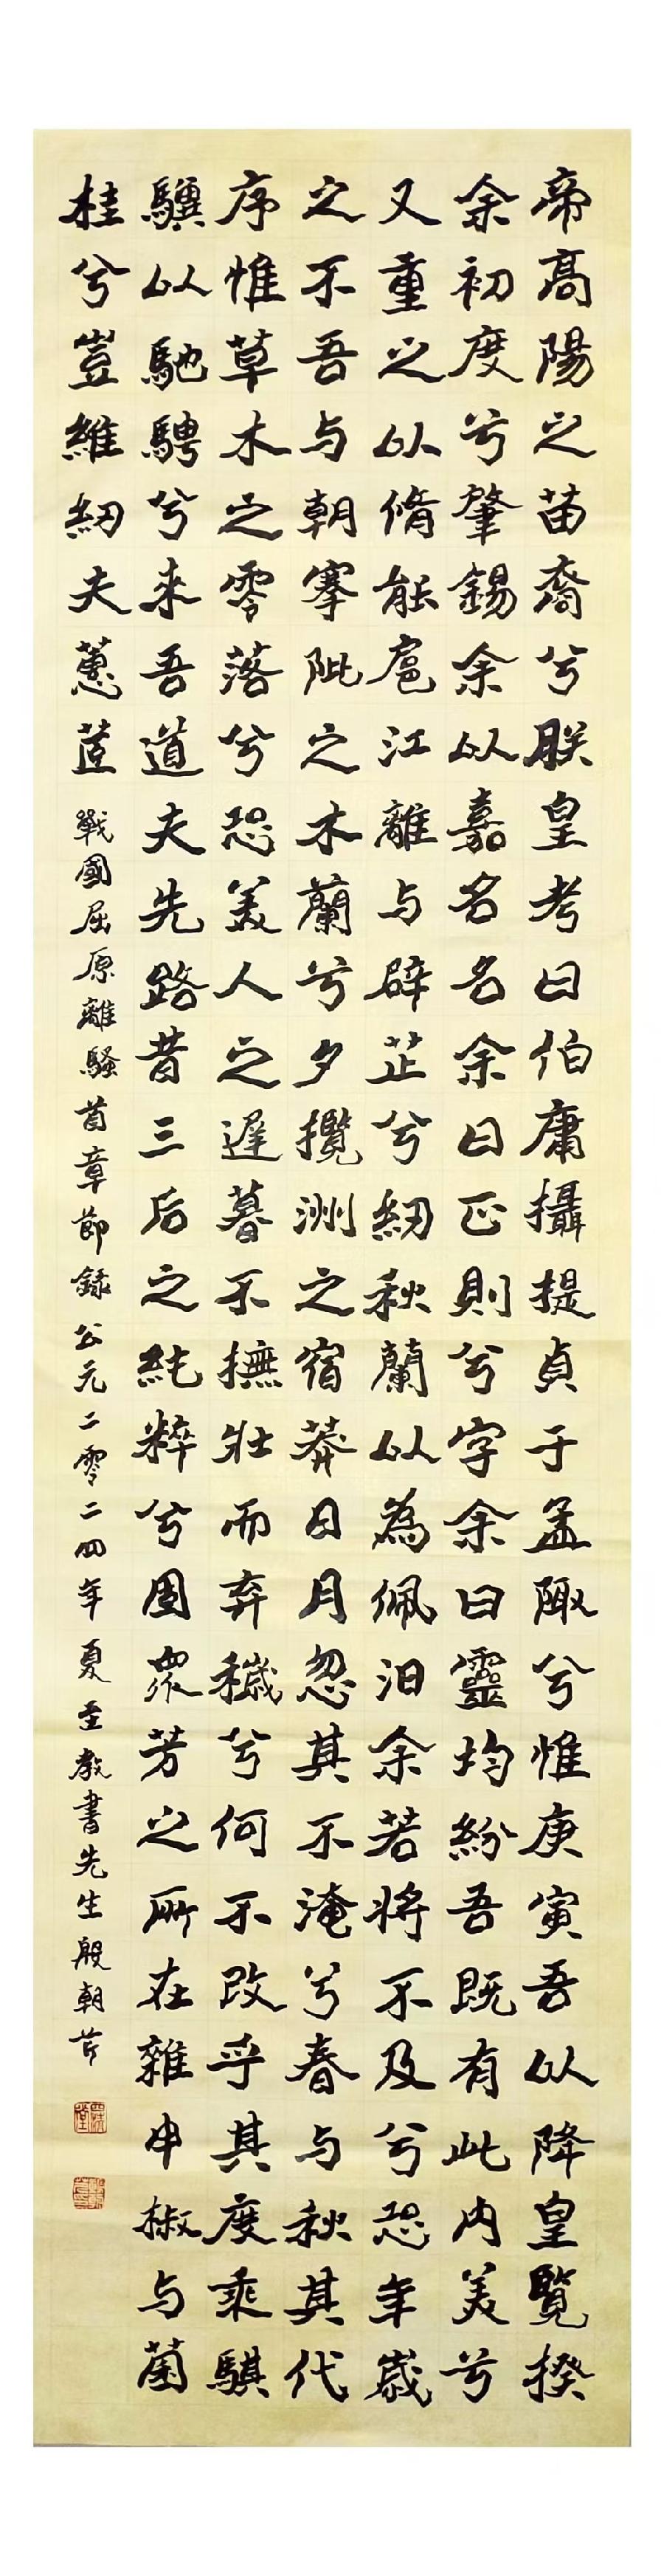 帝高陽之苗裔兮朕皇考曰伯庸攝提貞于孟陬兮惟庚寅吾以降皇覽揆
余初度兮肇錫余以嘉名名余曰正則兮字余曰靈均紛吾既有此内美兮
又重之以脩能扈江離与辟芷兮紉秋蘭以為佩汨余若將不及兮恐年歲
之不吾与朝搴阰之木蘭兮夕攬洲之宿莽日月忽其不淹兮春与秋其代
序惟草木之零落兮恐美人之遲暮不撫壯而弃穢兮何不改乎其度乘騏
驥以馳騁兮来吾道夫先路昔三后之純粹兮固衆芳之所在雜申椒与菌
桂兮豈維紉夫蕙茝
戰國屈原離騷首章節錄公元二零二四年夏至教書先生殷朝芹